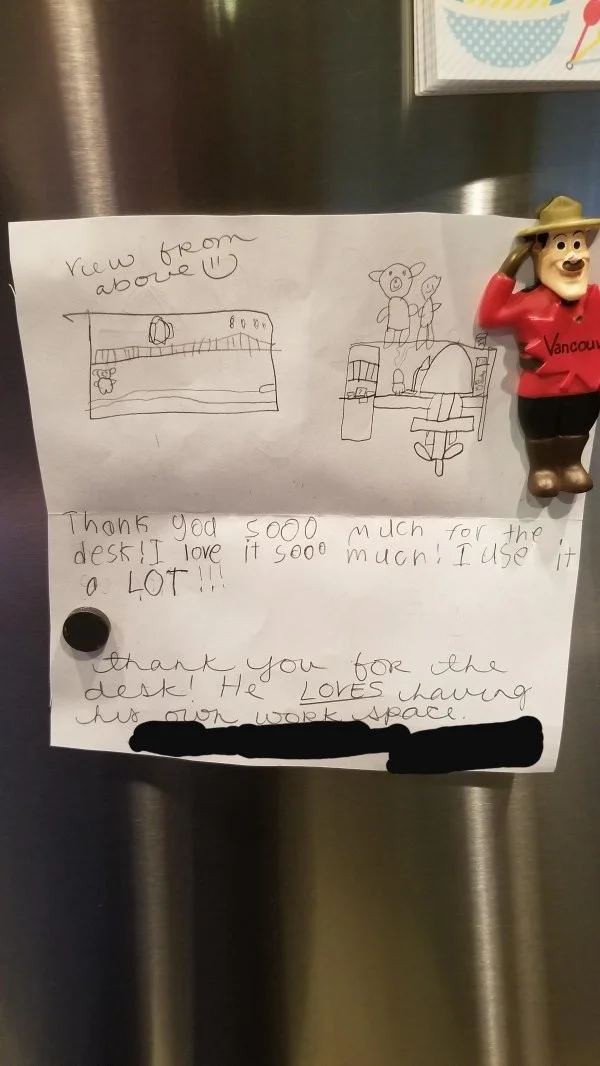 view from
above
Thank you sooo much for the
desk! I love it sooo much! I use it
a LOT!!!
thank you for the
desk! He LOVES having
his own work space.
Vancouv